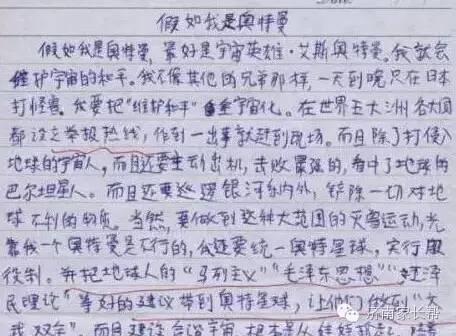 假如我是奥特曼
假如我是奥特曼,最好是宇宙英雄·艾斯奥特曼。我就会
维护宇宙的和平。我不像其他的兄弟那样,一天到晚只在日本
打怪兽。我要把“维护和平”宇宙化。在世界五大洲各大国
都设立举报热线,作到一出事就赶到现场。而且除了打侵入
地球的宇宙人,而且还要主动出机,去败最强的,看中了地球的
巴尔坦星人。而且还要巡逻银河系内外,铲除一切对地
球不利的物质。当然,要做到这种大范围的灭害运动,光
靠我一个奥特曼是不行的,我还要统一奥特星球,实行服
役制。并把地球人的“马列主义”“毛泽东思想”“
民理论”等好的建议带到奥特星球,让们
我双合”。而且建设合谐宇宙,
济南家长帮